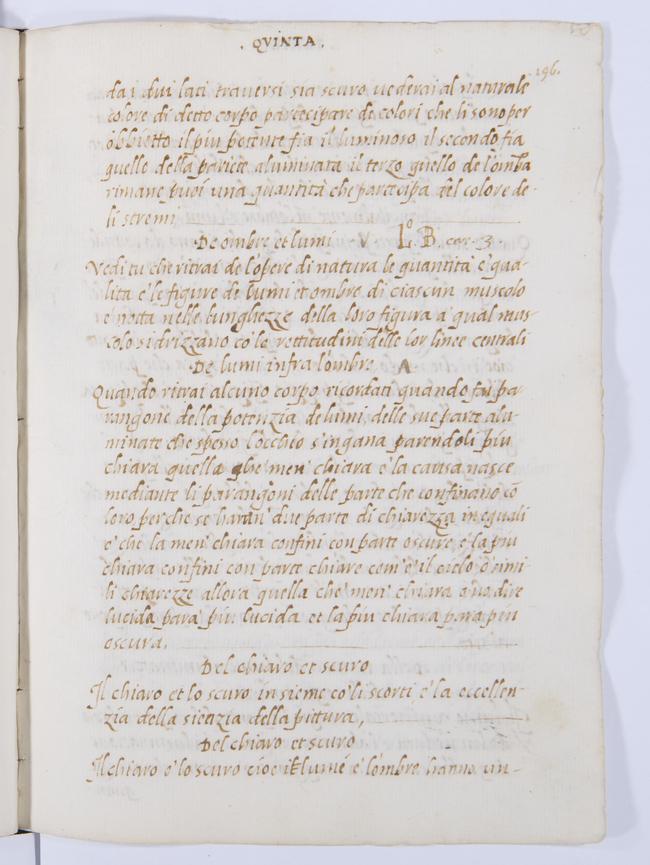 . QVINTA .
196.
da i dui lati traversi sia scuro vederai al naturale
colore di detto corpo partecipare de colori che li sono per
obbietto il piu potente fia il luminoso il secondo fia
quello della pariete aluminata il terzo quello de lomba
rimane puoi una quantità che partecipa del colore de-
li stremi
De ombre et lumi Lº. B. car. 3.
Vedi tu che ritrai de l'opere di natura le quantità e qua-
lita e le figure de lumi et ombre di ciascun muscolo
e notta nelle lunghezze della loro figura a qual mus-
colo si drizzano co le rettitudini delle lor linee centrali
De lumi infra lombre A
Quando ritrai alcuno corpo ricordati quando fai pa-
rangone della potenzia de lumi delle sue parte alu-
minate che spesso l'occhio s'ingana parendoli piu
chiara quella che men' chiara e la causa nasce
mediante li parangoni delle parte che confinano cō
loro perche se haran' due parte di chiarezza inequali
e che la men' chiara confini con parte oscure e la piu
chiara confini con parte chiare com' e il cielo o simi-
li chiarezze allora quella che men' chiara o vo dire
lucida para piu lucida et la piu chiara para piu
oscura.
Del chiaro et scuro
Il chiaro et lo scuro insieme co li scorti e la eccellen-
zia della sienzia della pittura,
Del chiaro et scuro
Il chiaro e lo scuro cioe il lume e lombre hanno un-